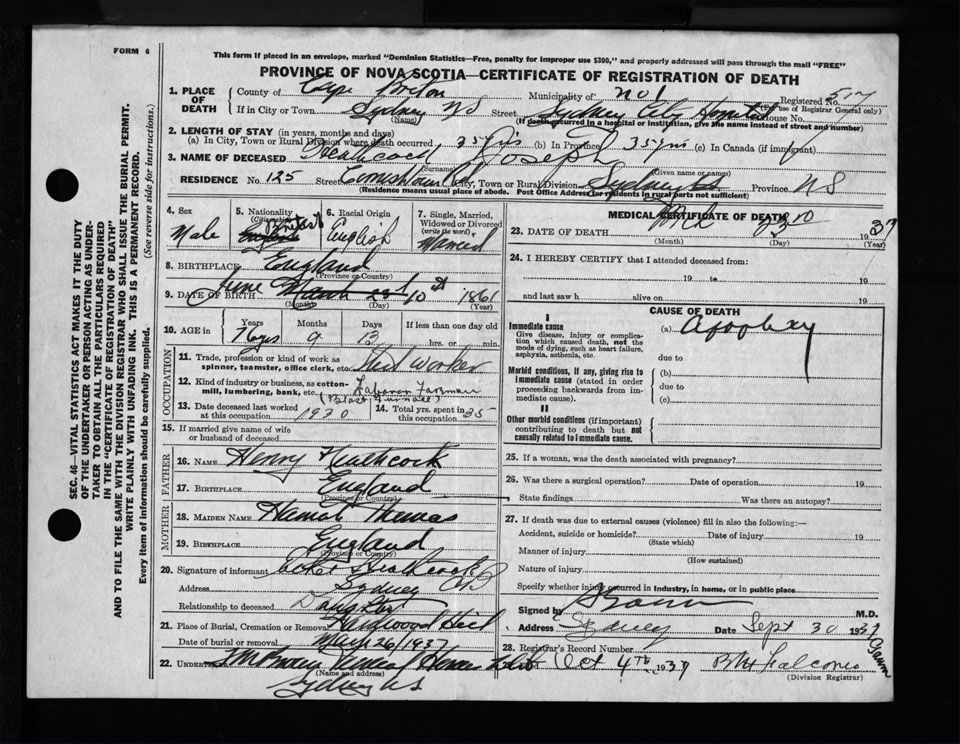 FORM 6
This form if placed in an envelope, marked "Dominion Statistics—Free, penalty for improper use $300," and properly addressed will pass through the mail "FREE"
PROVINCE OF NOVA SCOTIA—CERTIFICATE OF REGISTRATION OF DEATH
SEC. 46—VITAL STATISTICS ACT MAKES IT THE DUTY
OF THE UNDERTAKER OR PERSON ACTING AS UNDER-
TAKER TO OBTAIN ALL THE PARTICULARS REQUIRED
IN THE "CERTIFICATE OF REGISTRATION OF DEATH"
AND TO FILE THE SAME WITH THE DIVISION REGISTRAR WHO SHALL ISSUE THE BURIAL PERMIT.
WRITE PLAINLY WITH UNFADING INK. THIS IS A PERMANENT RECORD.
Every item of information should be carefully supplied. (See reverse side for instructions.)
1. PLACE OF DEATH County of Cape Breton Municipality of No 1 Registered No. 517
(For use of Registrar General only)
If in City or Town Sydney NS Street Sydney City Hospital House No.
(Name) (If death occurred in a hospital or institution, give the name instead of street and number)
2. LENGTH OF STAY (in years, months and days)
(a) In City, Town or Rural Division where death occurred 35 yrs (b) In Province 35 yrs (c) In Canada (if immigrant)
3. NAME OF DECEASED Heathcock Joseph
(Surname) (Given name or names)
RESIDENCE No. 125 Street City, Town or Rural Division Sydney Province NS
(Residence means usual place of abode. Post Office Address for residents in rural parts not sufficient)
4. Sex Male
5. Nationality (Citizenship) British
6. Racial Origin English
7. Single, Married, Widowed or Divorced (write the word) Married
8. BIRTHPLACE England
(Province or Country)
9. DATE OF BIRTH June March 23 10th 1861
(Month) (Day) (Year)
10. AGE in Years Months Days If less than one day old
9 13 hrs. or min.
OCCUPATION
11. Trade, profession or kind of work as spinner, teamster, office clerk, etc. worker
12. Kind of industry or business, as cotton-mill, lumbering, bank, etc. Laborer Foreman (Blast Furnace)
13. Date deceased last worked at this occupation 1930
14. Total yrs. spent in this occupation 35
15. If married give name of wife or husband of deceased
FATHER
16. NAME Henry Heathcock
17. BIRTHPLACE England
(Province or Country)
MOTHER
18. MAIDEN NAME Harriet Thomas
19. BIRTHPLACE England
(Province or Country)
20. Signature of informant Heathcock
Address Sydney CB
Relationship to deceased Daughter
21. Place of Burial, Cremation or Removal Hardwood Hill
Date of burial or removal Mar 26/1937
22. UNDERTAKER
(Name and address)
Sydney NS
MEDICAL CERTIFICATE OF DEATH
23. DATE OF DEATH Mch 23rd 1937
(Month) (Day) (Year)
24. I HEREBY CERTIFY that I attended deceased from:
19 to 19
and last saw h alive on 19
CAUSE OF DEATH
I
Immediate cause
Give disease, injury or complication which caused death, not the mode of dying, such as heart failure, asphyxia, asthenia, etc.
(a) Apoplexy
due to
Morbid conditions, if any, giving rise to immediate cause (stated in order proceeding backwards from immediate cause).
(b)
due to
(c)
II
Other morbid conditions (if important) contributing to death but not causally related to immediate cause.
25. If a woman, was the death associated with pregnancy?
26. Was there a surgical operation? Date of operation 19
State findings Was there an autopsy?
27. If death was due to external causes (violence) fill in also the following:—
Accident, suicide or homicide? Date of injury 19
(State which)
Manner of injury
(How sustained)
Nature of injury
Specify whether injury occurred in Industry, in home, or in public place
Signed by M.D.
Address Sydney Date Sept 30 1937
28. Registrar's Record Number
29. Oct 4th 1937 Falconer
(Division Registrar)